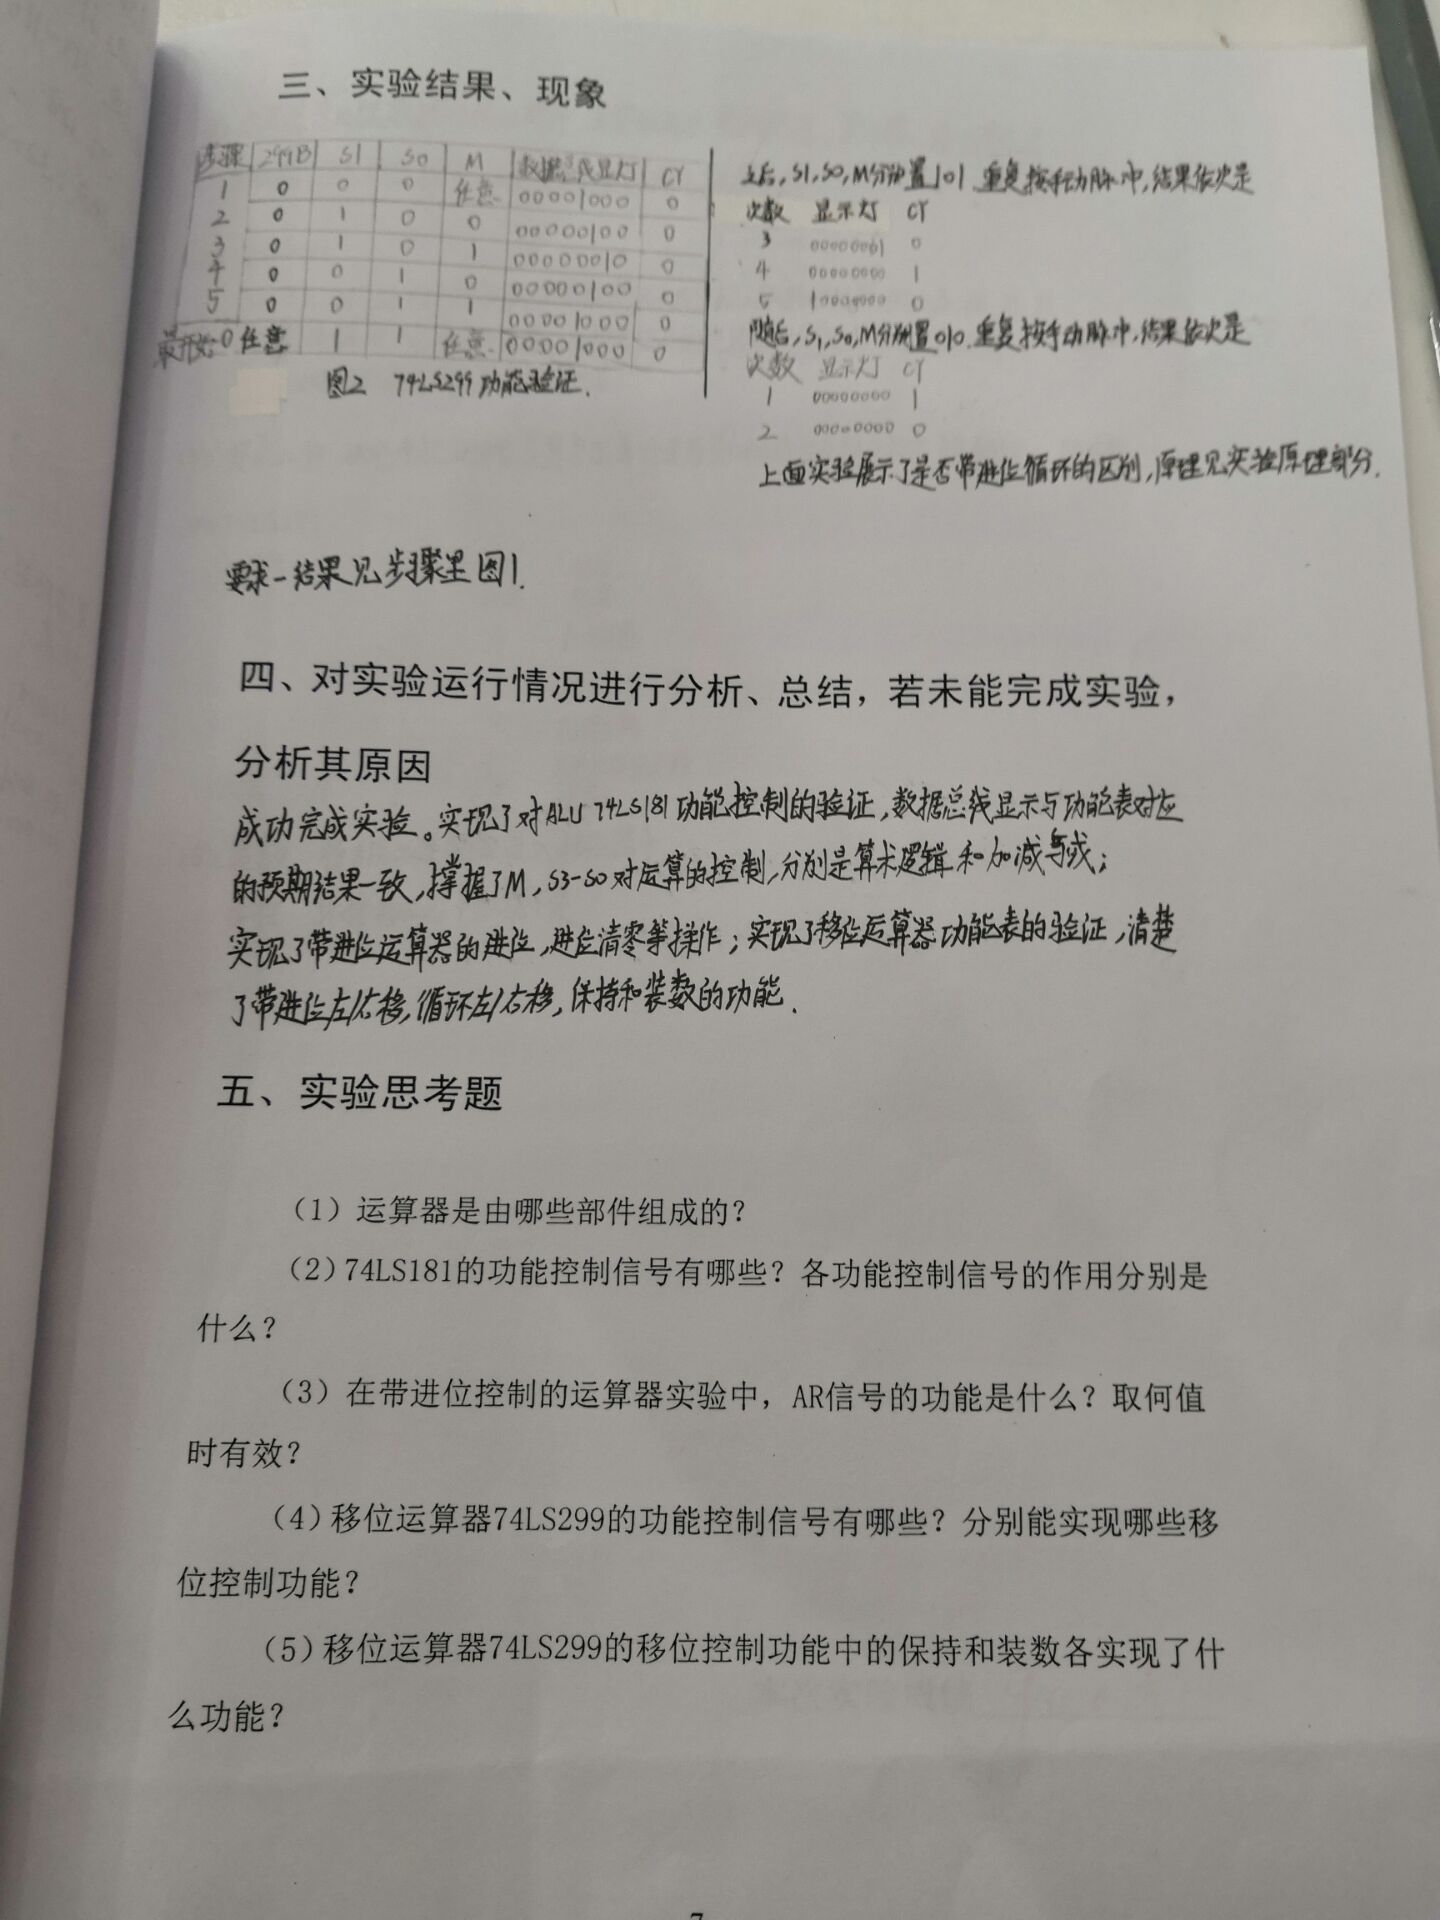 三、实验结果、现象
步骤 299B S1 S0 M 数据总线显灯 CY
1 0 0 0 任意 00001000 0
2 0 1 0 0 00000100 0
3 0 1 0 1 00000010 0
4 0 0 1 0 00000100 0
5 0 0 1 1 00001000 0
最开始0 任意 1 1 任意 00001000 0
图2 74LS299功能验证.
之后,S1,S0,M分别置101.重复按手动脉冲,结果依次是
次数 显示灯 CY
3 00000001 0
4 00000000 1
5 10000000 0
随后,S1,S0,M分别置010.重复按手动脉冲,结果依次是
次数 显示灯 CY
1 00000000 1
2 00000000 0
上面实验展示了是否带进位循环的区别,原理见实验原理部分.
要求一结果见步骤里图1.
四、对实验运行情况进行分析、总结，若未能完成实验，
分析其原因
成功完成实验。实现了对ALU 74LS181功能控制的验证,数据总线显示与功能表对应
的预期结果一致,掌握了M,S3-S0对运算的控制,分别是算术逻辑和加减与或;
实现了带进位运算器的进位,进位清零等操作;实现了移位运算器功能表的验证,清楚
了带进位左/右移,循环左/右移,保持和装数的功能.
五、实验思考题
（1）运算器是由哪些部件组成的？
（2）74LS181的功能控制信号有哪些？各功能控制信号的作用分别是
什么？
（3）在带进位控制的运算器实验中，AR信号的功能是什么？取何值
时有效？
（4）移位运算器74LS299的功能控制信号有哪些？分别能实现哪些移
位控制功能？
（5）移位运算器74LS299的移位控制功能中的保持和装数各实现了什
么功能？